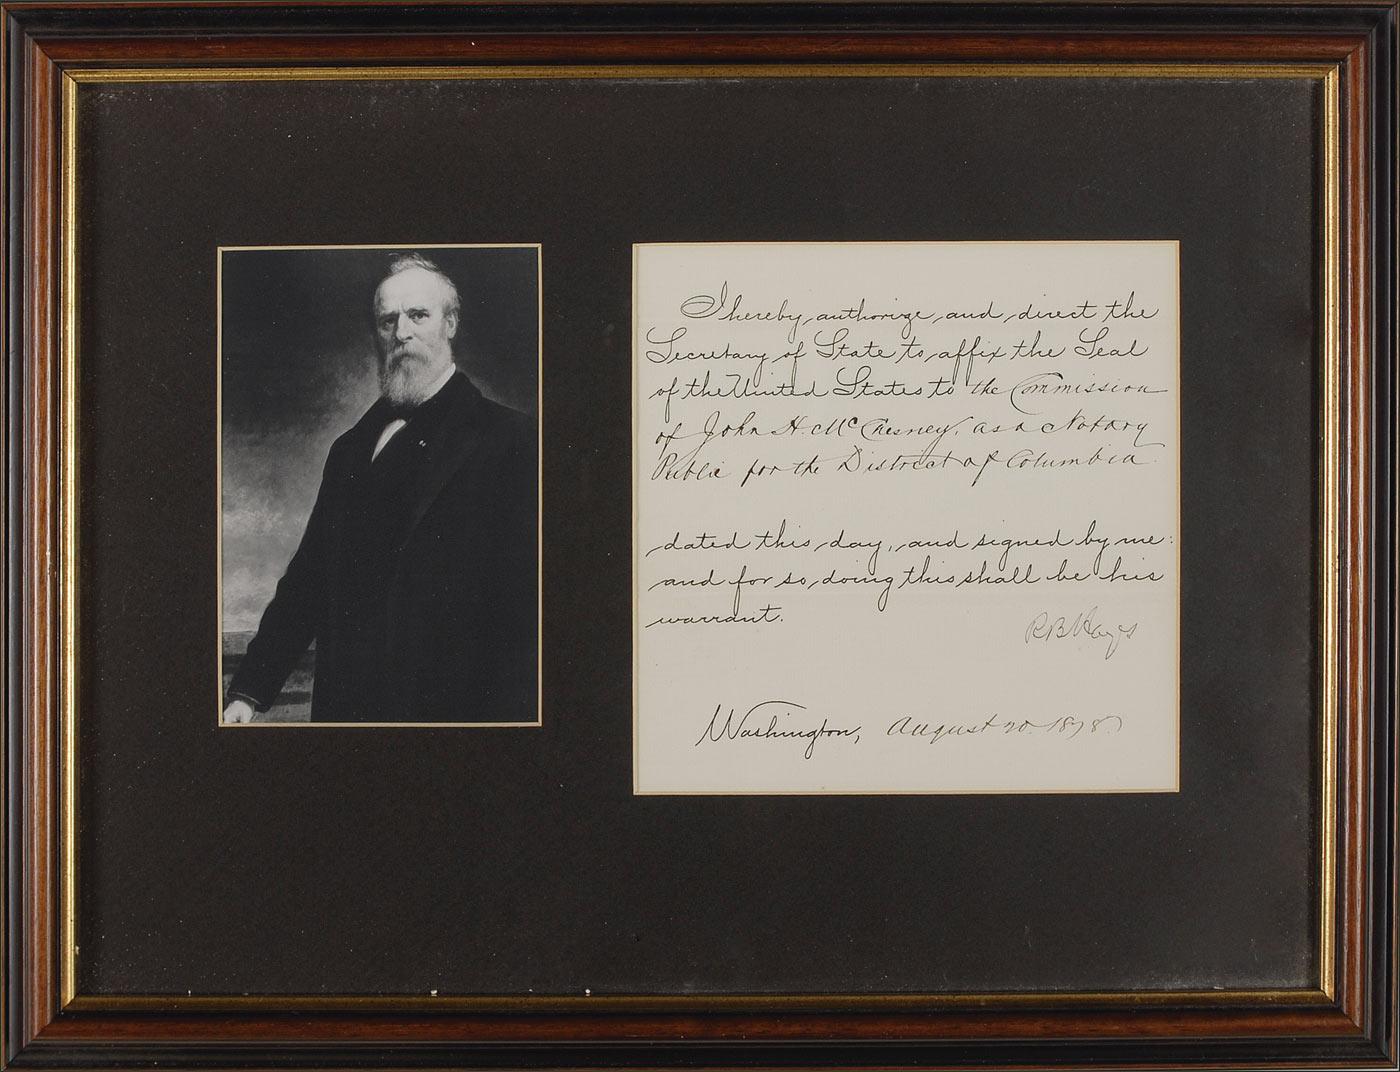 I hereby authorize and direct the
Secretary of State to affix the Seal
of the United States to the Commission
of John H. McChesney, as a Notary
Public for the District of Columbia
dated this day, and signed by me:
and for so doing this shall be his
warrant.
R B Hayes
Washington, August 20. 1878.